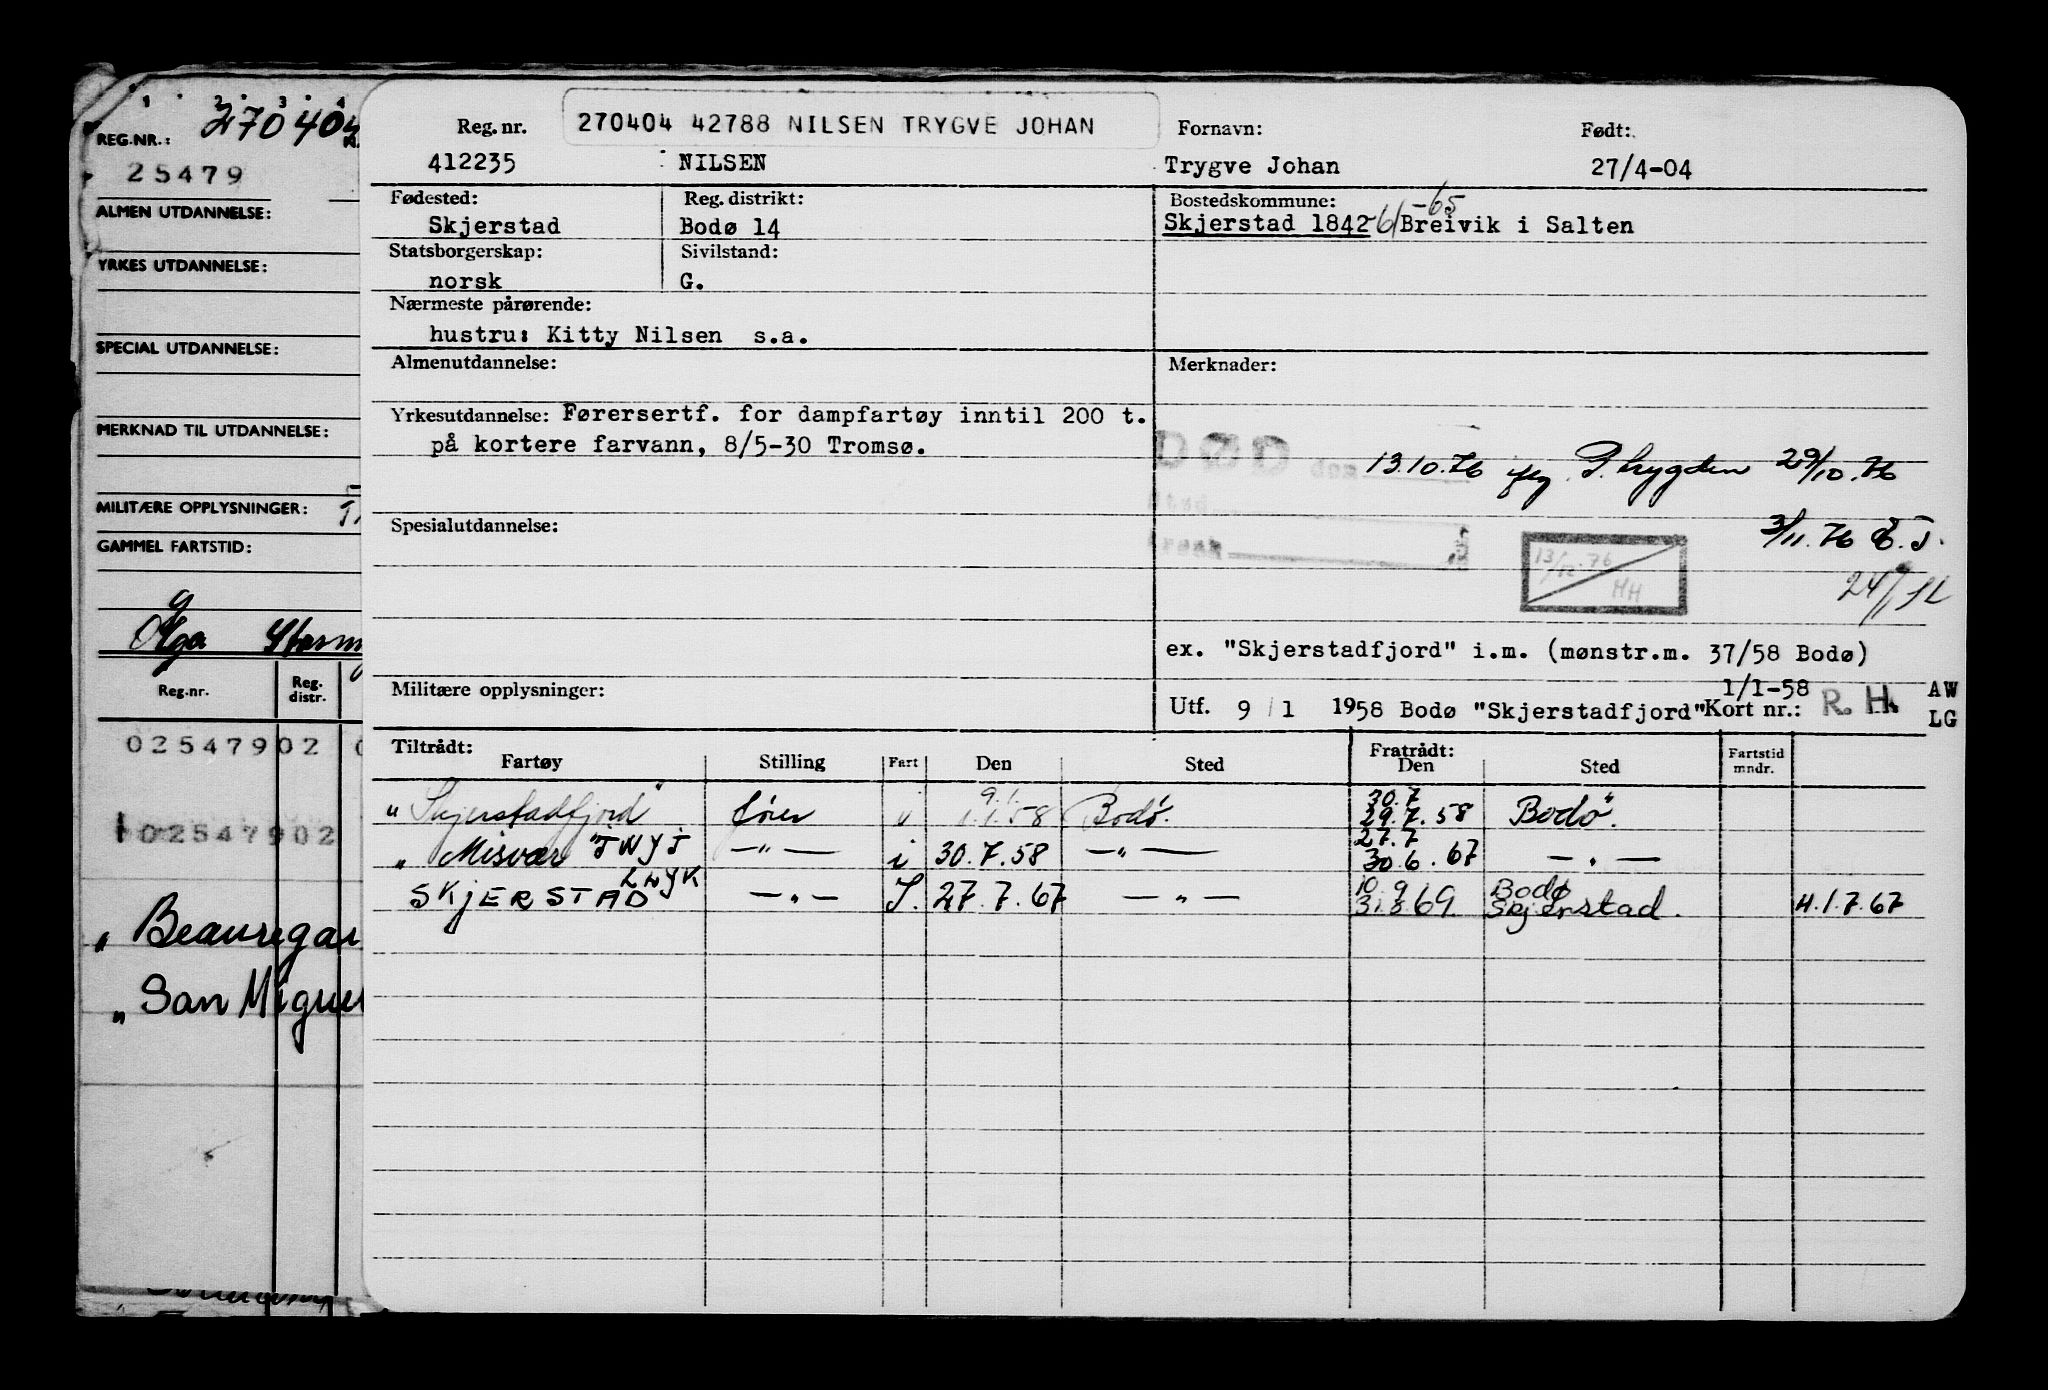 1 2 3 4
REG.NR.: 270404
25479
ALMEN UTDANNELSE:
YRKES UTDANNELSE:
SPECIAL UTDANNELSE:
MERKNAD TIL UTDANNELSE:
MILITÆRE OPPLYSNINGER:
GAMMEL FARTSTID:
Olga
Reg.nr. Reg. distr.
02547902
02547902
„ Beauregar
„ San Miguel
Reg. nr. 270404 42788 NILSEN TRYGVE JOHAN Fornavn: Født:
412235 NILSEN Trygve Johan 27/4-04
Fødested: Reg. distrikt: Bostedskommune: -65
Skjerstad Bodø 14 Skjerstad 1842-61 Breivik i Salten
Statsborgerskap: Sivilstand:
norsk G.
Nærmeste pårørende:
hustru: Kitty Nilsen s.a.
Almenutdannelse: Merknader:
Yrkesutdannelse: Førersertf. for dampfartøy inntil 200 t.
på kortere farvann, 8/5-30 Tromsø.
DØD den 13.10.76 P. trygden 29/10.76
Spesialutdannelse:
3/11.76
13/12.76
HH
ex. "Skjerstadfjord" i.m. (mønstr.m. 37/58 Bodø)
Militære opplysninger: 1/1-58
Utf. 9/1 1958 Bodø "Skjerstadfjord" Kort nr.: R.H. AW
LG
Tiltrådt: Fratrådt:
Fartøy Stilling Fart Den Sted Den Sted Fartstid mndr.
9.1. 30.7
"Skjerstadfjord" fører i 1.1.58 Bodø. 29.7.58 Bodø.
27.7
„ Misvær TWYJ —"— i 30.7.58 —"— 30.6.67 —"—
LHYK 10.9 Bodø
SKJERSTAD —"— I. 27.7.67 —"— 31.8 69. Skjerstad. 4.1.7.67